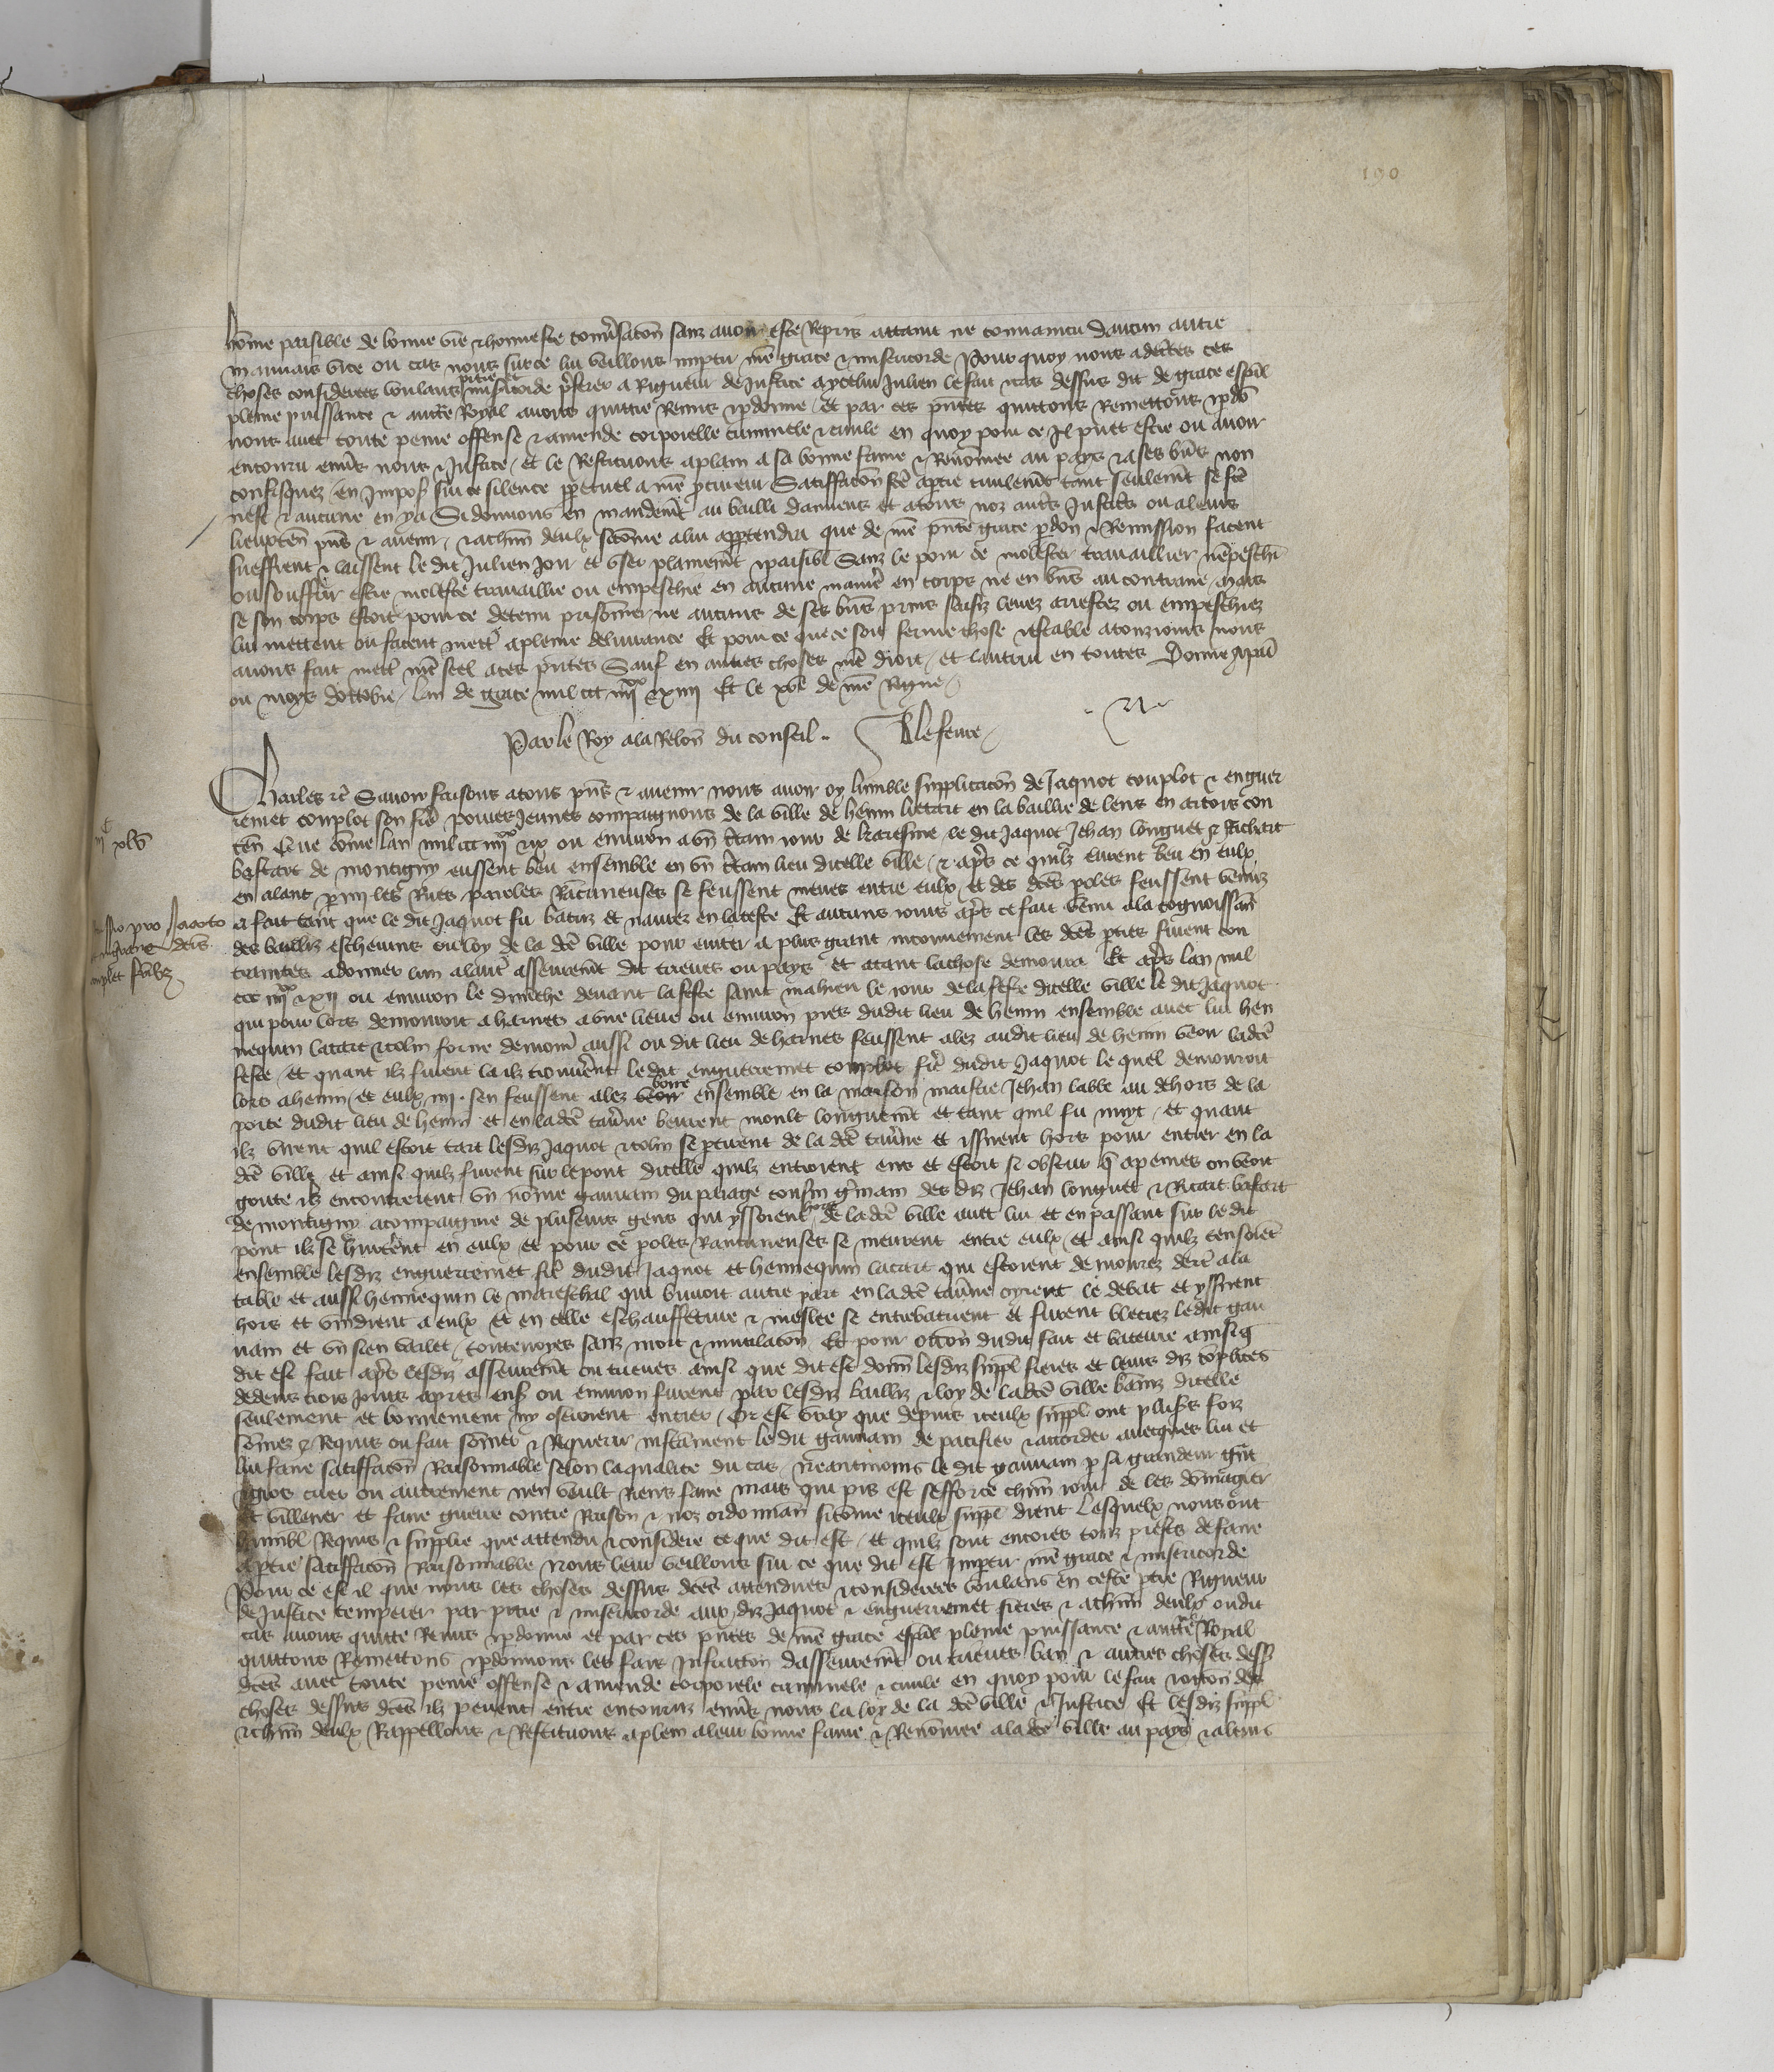 190
home paisible de bonne vie & honneste conv̾sacōn sanz avoir esté reprins attaint ne convaincu daucun autre
mauvais vice ou cas nous sur ce lui veillons impartir nr̄e grace & misericorde Pour quoy nous adecertes ces
choses considerees voulans pitié misericorde p̄ferer a Rigueur de Justice aycelui Julien le fait & cas dessus dit de grace esp̄al
pleine puissance & auct̄e Royal avons quittié Remis & p̄donné et par ces p̄ntes quittons Remettons & p̄don
nons avec toute peine offense & amende corporelle criminele & civile en quoy pour ce Il puet estre ou avoir
encouru env̄s nous & Justice / et le Restituons a plain a sa bonne fame & Renōmee au pays & a ses biēs non
confisquez / en Impos̄ sur ce silence p̄petuel a nr̄e p̄cureur Satisfacōn fc̄e a p̄tie civilemēt tant seulemēt se fc̄e
nest & aucune en y a Si donnons en mandemēt au bailli damiens et a tous noz aut̄s Justic̄s ou a leurs
lieuxten̄ p̄ns & avenir / & a chūn deulx si cōme a lui app̄tendra que de nr̄e p̄nte grace p̄don & Remission facent
sueffrent & laissent le dit Julien Joir et user plainemēt & paisibl̄ Sanz le pour ce molester travaillier nēpeschier
ou souffrir estre molesté travaillié ou empeschié en aucune maniēe en corps ne en biēs au contraire / Mais
se son corps estoit pour ce detenu prisōnier ne aucuns de ses biēs prins saisiz levez arrestez ou empeschiez
lui mettent ou facent mettr̄ a pleine delivrance Et pour ce que ce soit ferme chose & estable a touzjours nous
avons fait mettr̄ nr̄e seel a ces p̄ntes Sauf en autres choses nr̄e droit / et lautrui en toutes Donné a paris
ou moys doctobre / lan de grace mil ccc iiijxx & xiiij Et le xve de nr̄e Regne /
Par le Roy a la Relōn du conseil . Lefevre /
Charles &c̄ Savoir faisons a tous p̄ns & avenir nous avoir oy lumble supplicacōn de Jaquot couplot & enguer
remet couplot son fr̄e povres Jeunes compaignons de la ville de henin lietart en la baillie de lens en artois con
ten̄ Que cōme lan mil ccc iiijxx & x ou environ a un c̄tain jour de karesme le dit Jaquot Jehan longuet & Richart
bastart de montigny eussent beu ensemble en un c̄tain lieu dicelle ville / & ap̄s ce quilz eurent beu en eulx
en alant p̄my les Rues paroles Rancuneuses se feussent meues entre eulx / et des dc̄es p̄oles feussent venuz
a fait tant que le dit Jaquot fu batuz et navrez en la teste Et aucuns jours ap̄s ce fait venu a la cognoissān̄
des bailliz eschevins ou loy de la dc̄e ville pour eviter a plus grant inconvenient les dc̄es p̄ties furent con
traintes a donner lun a lautr̄e asseuremēt dit treves ou pays et atant la chose demoura Et ap̄s lan mil
ccc iiijxx & xij ou environ le dimēche devant la feste saint mahieu le jour de la feste dicelle ville le dit Jaquot
qui pour lors demouroit a harnes a une lieue ou environ pres du dit lieu de henin ensemble avec lui hen
nequin lacart & colin forme demour̄ aussi ou dit lieu de harnes feussent alez au dit lieu de henin veoir la dc̄e
feste / et quant ilz furent la ilz trouv̄ent le dit enguerremet couplot fr̄e du dit Jaquot le quel demouroit
lors a henin / et eulx iiij . sen feussent alez veoir boire ensemble en la maison maistre Jehan labbe au dehors de la
porte du dit lieu de henin et en la dc̄e tav̄ne beurent moult longuemēt et tant quil fu nuyt / et quant
ilz virent quil estoit tart les diz Jaquot & colin se p̄tirent de la dc̄e tav̄ne et issirent hors pour entrer en la
dc̄e ville et ainsi quilz furent sur le pont dicelle quilz entroient ens et estoit si obscur q̄ a peines on veoit
goute ilz encontrerent un nōme gauvain du parage cousin ḡmain des diz Jehan longuet & Ricart bastart
de montigny acompaignié de pluseurs gens qui yssoient hors de la dc̄e ville avec lui et en passant sur le dit
pont ilz se hurtēent en eulx et pour ce p̄oles Rancuneuses se meurent entre eulx / et ainsi quilz tensoiēt
ensemble les diz enguerremet fr̄e du dit Jaquot et hennequin lacart qui estoient demourez derr̄e a la
table et aussi hennequin le mareschal qui buvoit autre part en la dc̄e tav̄ne oyrent le debat et yssirent
hors et vindrent a eulx et en celle eschauffeture & meslee se entrebatirent et furent bleciez le dit gau
vain et un sien varlet / toutevoyes sanz mort & mutilacōn Et pour occōn du dit fait et bateure ainsi q̄
dit est fait ap̄s les diz asseuremēt ou treves ainsi que dit est donn̄ les diz suppl̄ freres et leurs diz cōplices
dedens trois Jours apres ens̄ ou environ furent par les diz bailliz & loy de la dc̄e ville bānnz dicelle
seulement et bonnement ny oseroient entrer / Or est vray que depuis iceulx suppl̄ ont plus̄s foiz
sōmez & Requis ou fait sōmer & Requerir instāment le dit gauvain de pacifier & accorder avecques lui et
lui faire satisfacōn Raisonnable selon la qualité du cas / Neantmoins le dit gauvain p̄ sa grandeur ḡnt
& gros cuer ou autrement nen veult Riens faire mais qui pis est sefforce chūn jour de les dōmagier
Et villener et faire guerre contre Raison & noz ordonnan̄ si cōme iceulx suppl̄ dient Lesquelx nous ont
humbl̄ Requis & supplié que attendu & consideré ce que dit est / et quilz sont encores touz prests de faire
a p̄tie satisfacōn Raisonnable Nous leur veillons sur ce que dit est Impartir nr̄e grace & misericorde
Pour ce est il que nous les choses dessus dc̄es attendues & considerees voulans en ceste p̄tie Rigueur
de Justice temperer par pitié & misericorde aux diz Jaquot & enguerremet freres & a chūn deulx ou dit
cas avons quitté Remis & p̄donné et par ces p̄ntes de nr̄e grace esp̄al pleine puissance & auct̄e Royal
quittons Remettons & p̄donnons les faiz Infraccōn dasseuremēt ou treves ban & autres choses dess̄
dc̄es avec toute peine offense & amende corporele criminele & civile en quoy pour le fait & occōn des
choses dessus dc̄es ilz pevent entre encouruz env̄s nous la loy de la dc̄e ville & Justice Et les diz suppl̄
& chūn deulx Rappellons & Restituons a plein a leur bonne fame & Renōmee a la dc̄e ville au pays & a leurs
iijc xlv